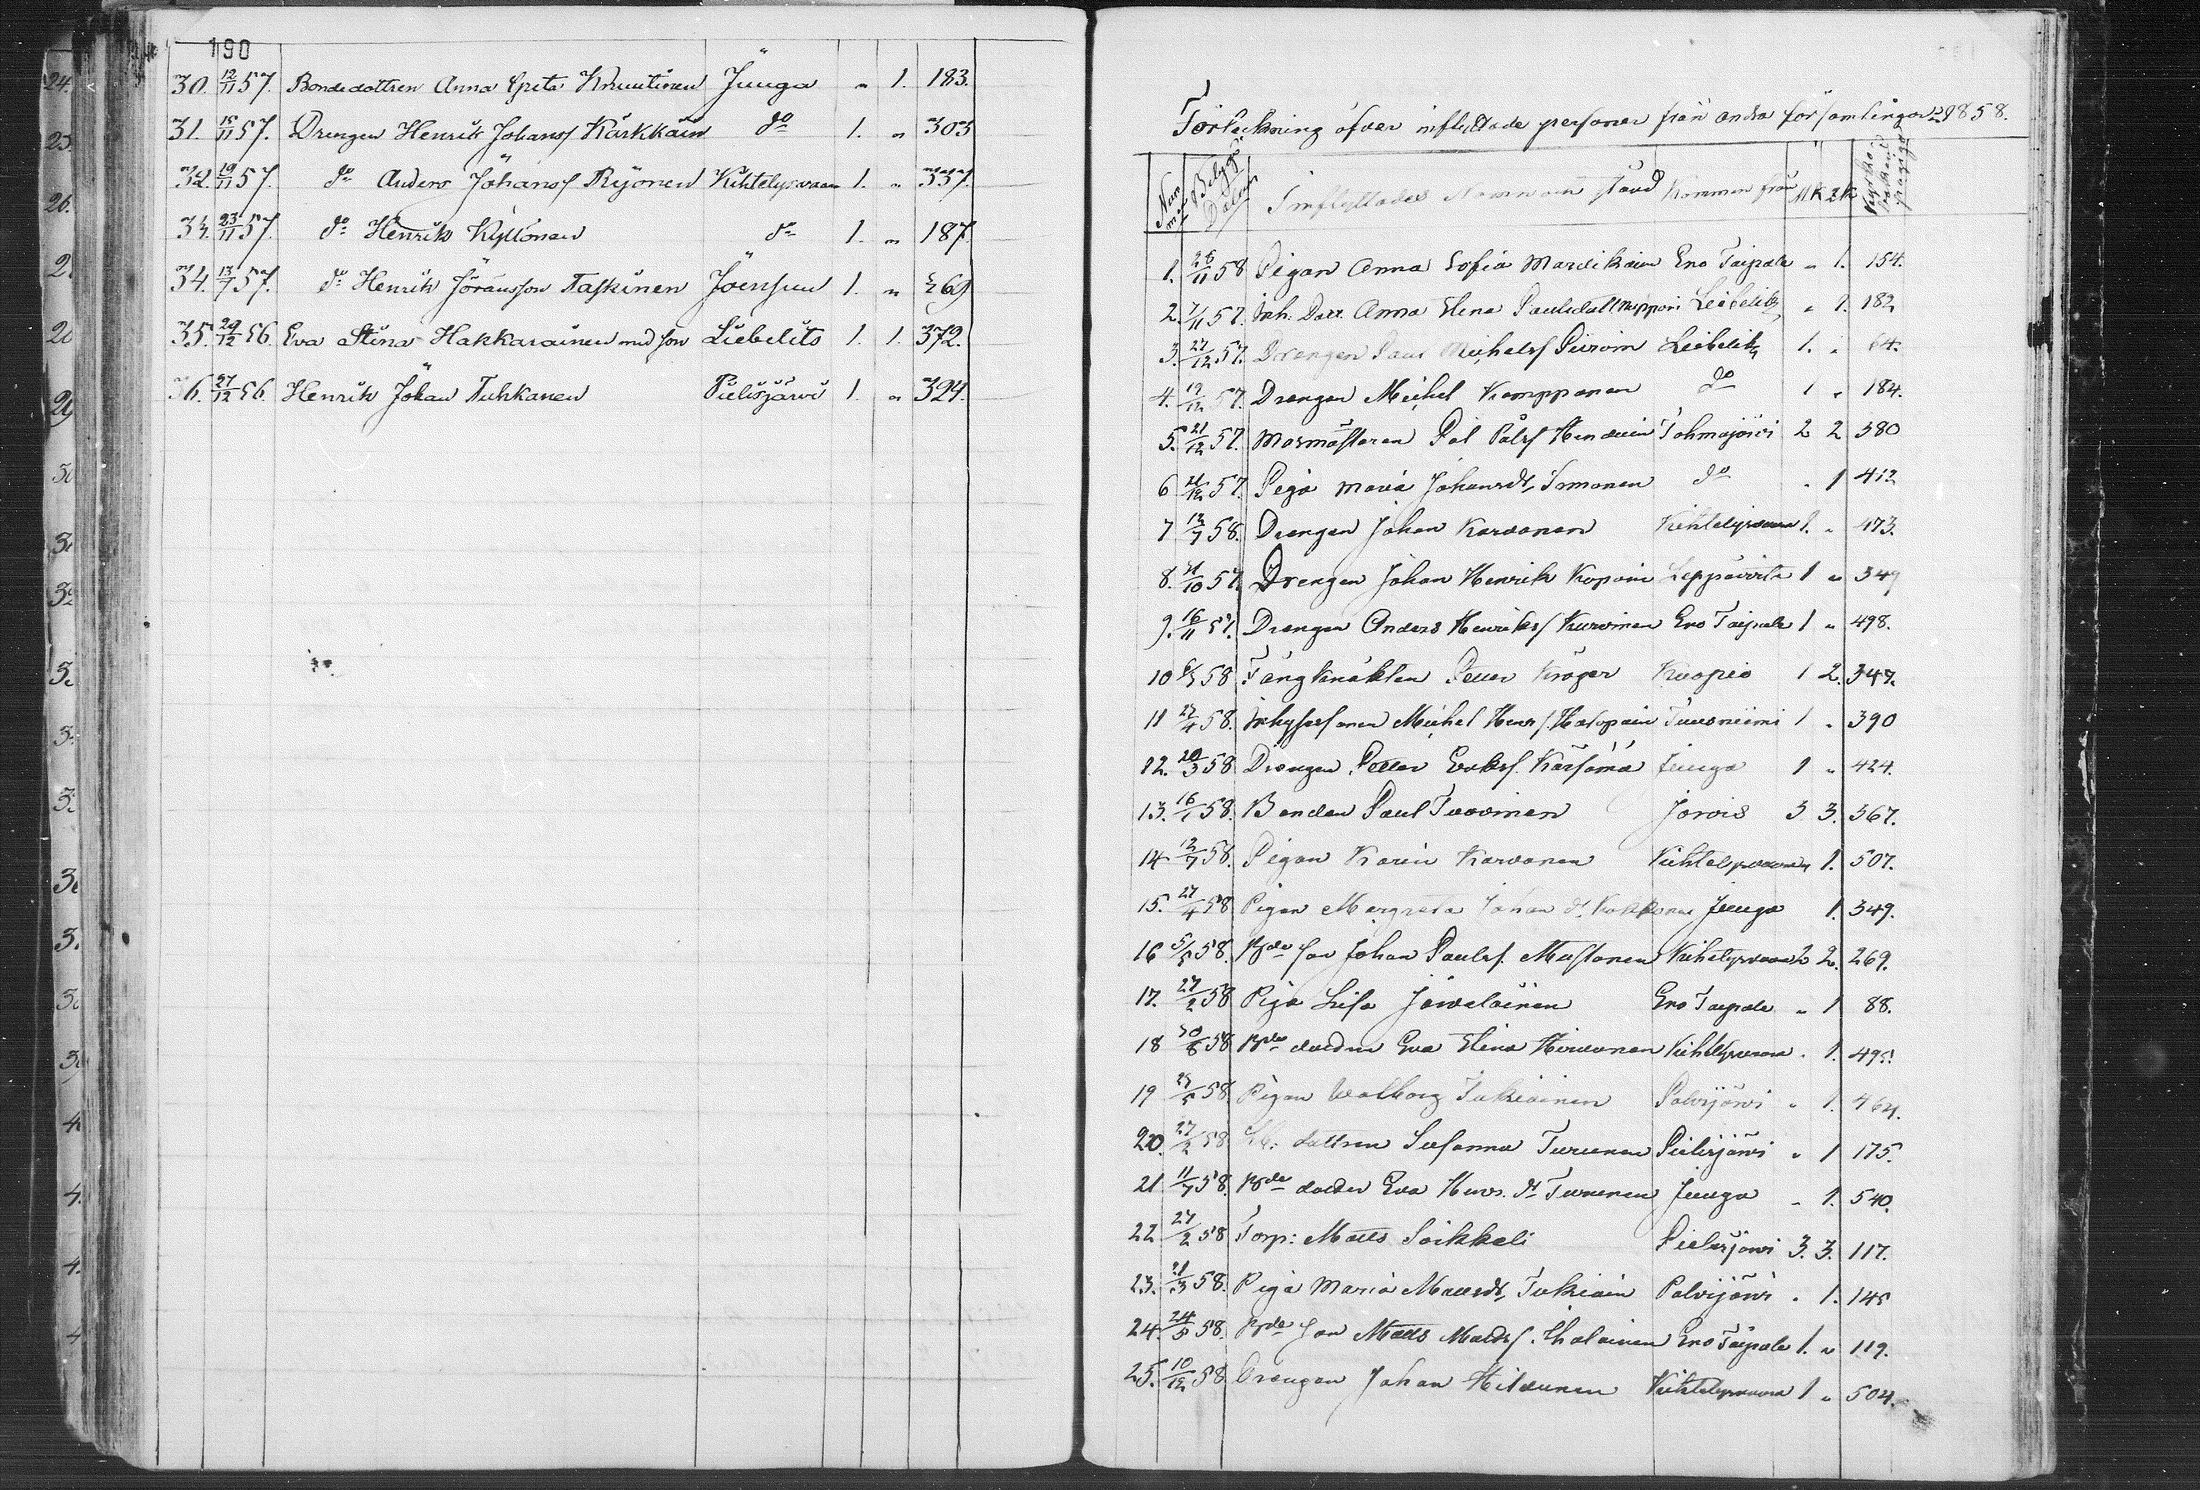 190
30. 12/11 57. Bondedottren Anna Greta Knuutinen Juuga " 1. 183.
31. 15/11 57. Drengen Henrik Johanss Kärkkäin do 1. " 303
32. 19/11 57. do Anders Johanss Ryönen Kihtelysvaara 1. " 337.
33. 23/11 57. do Henrik Kyllönen do 1. " 187.
34. 13/7 57. do Henrik Jöransson Taskinen Joensuu 1. " 269
35. 29/12 56. Eva Stina Hakkarainen med son Liebelits 1. 1. 372.
36. 27/12 56. Henrik Johan Tuhkanen Pielisjärvi 1. " 324.
Förteckning öfver inflyttade personer från andra församlingar 1858.
Inflyttades Namn och stånd Kommen från M K Q K
1. 26/11 58 Pigan Anna Sofia Mardikain Eno Taipale " 1. 154.
2. 7/11 57. Inh. Dott. Anna Elena Paulsdott Leibelitz " 1. 182
3. 27/12 57. Drengen Paul Michelss Piiroin Leibelitz 1. " 64.
4. 19/12 57. Drengen Michel Kamppanen do 1 " 184.
5. 21/12 57. Masmästaren Pål Pålss Tohmajärvi 2 2 380
6 21/12 57. Piga Maria Johansdt, Immonen do " 1 412
7 12/7 58. Drengen Johan Karvanen Kihtelysvaara 1. " 473.
8. 21/10 57. Drengen Johan Henrik Kopoin Leppävirta 1 " 349
9. 16/11 57. Drengen Anders Henrikss Kurvinen Eno Taipale 1 " 498.
10 6/3 58 Fångknekten Petter Kröger Kuopio 1 2. 347.
11 27/4 58. Inhysesmannen Michel Henrs Halopain Tuusniemi 1 " 390
12. 20/3 58 Drengen Petter Eriks. Karsämä Juuga 1 " 424.
13. 16/1 58. Bonden Paul Tuovinen Jorois 3 3. 367.
14 12/7 58. Pigan Karin Karvanen Kihtelysvaara " 1. 507.
15. 27/4 58 Pigan Margreta Johan dt. Kokkonen Juuga 1. 349.
16 5/5 58. Bde son Johan Paulss. Mustonen Kihtelysvaara 2 2. 269.
17. 27/2 58 Piga Lisa Jäväläinen Eno Taipale " 1 88.
18 30/8 58 Bde dotter Eva Elina Hirvonen Kihtelysvaara " 1. 495.
19 25/5 58. Pigan Walborg Tukiainen Polvijärvi " 1. 464.
20. 27/2 58 dottren Susanna Turunen Pielisjärvi " 1 175.
21 11/7 58. Bde dotter Eva Henrs. dt Turunen Juuga " 1. 540.
22 27/2 58 Torp: Matts Soikkeli Pielisjärvi 3. 3. 117.
23. 21/3 58. Piga Maria Mattsdt, Tukiain Polvijärvi " 1. 145
24. 24/5 58. Bde son Matts Mattss. Ihalainen Eno Taipale 1. " 119.
25. 10/12 58. Drengen Johan Hiltunen Kihtelysvaara 1 " 504.